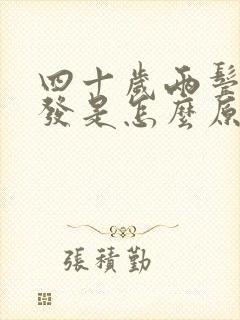 四十歲兩鬢
發是怎麼原
張積勤